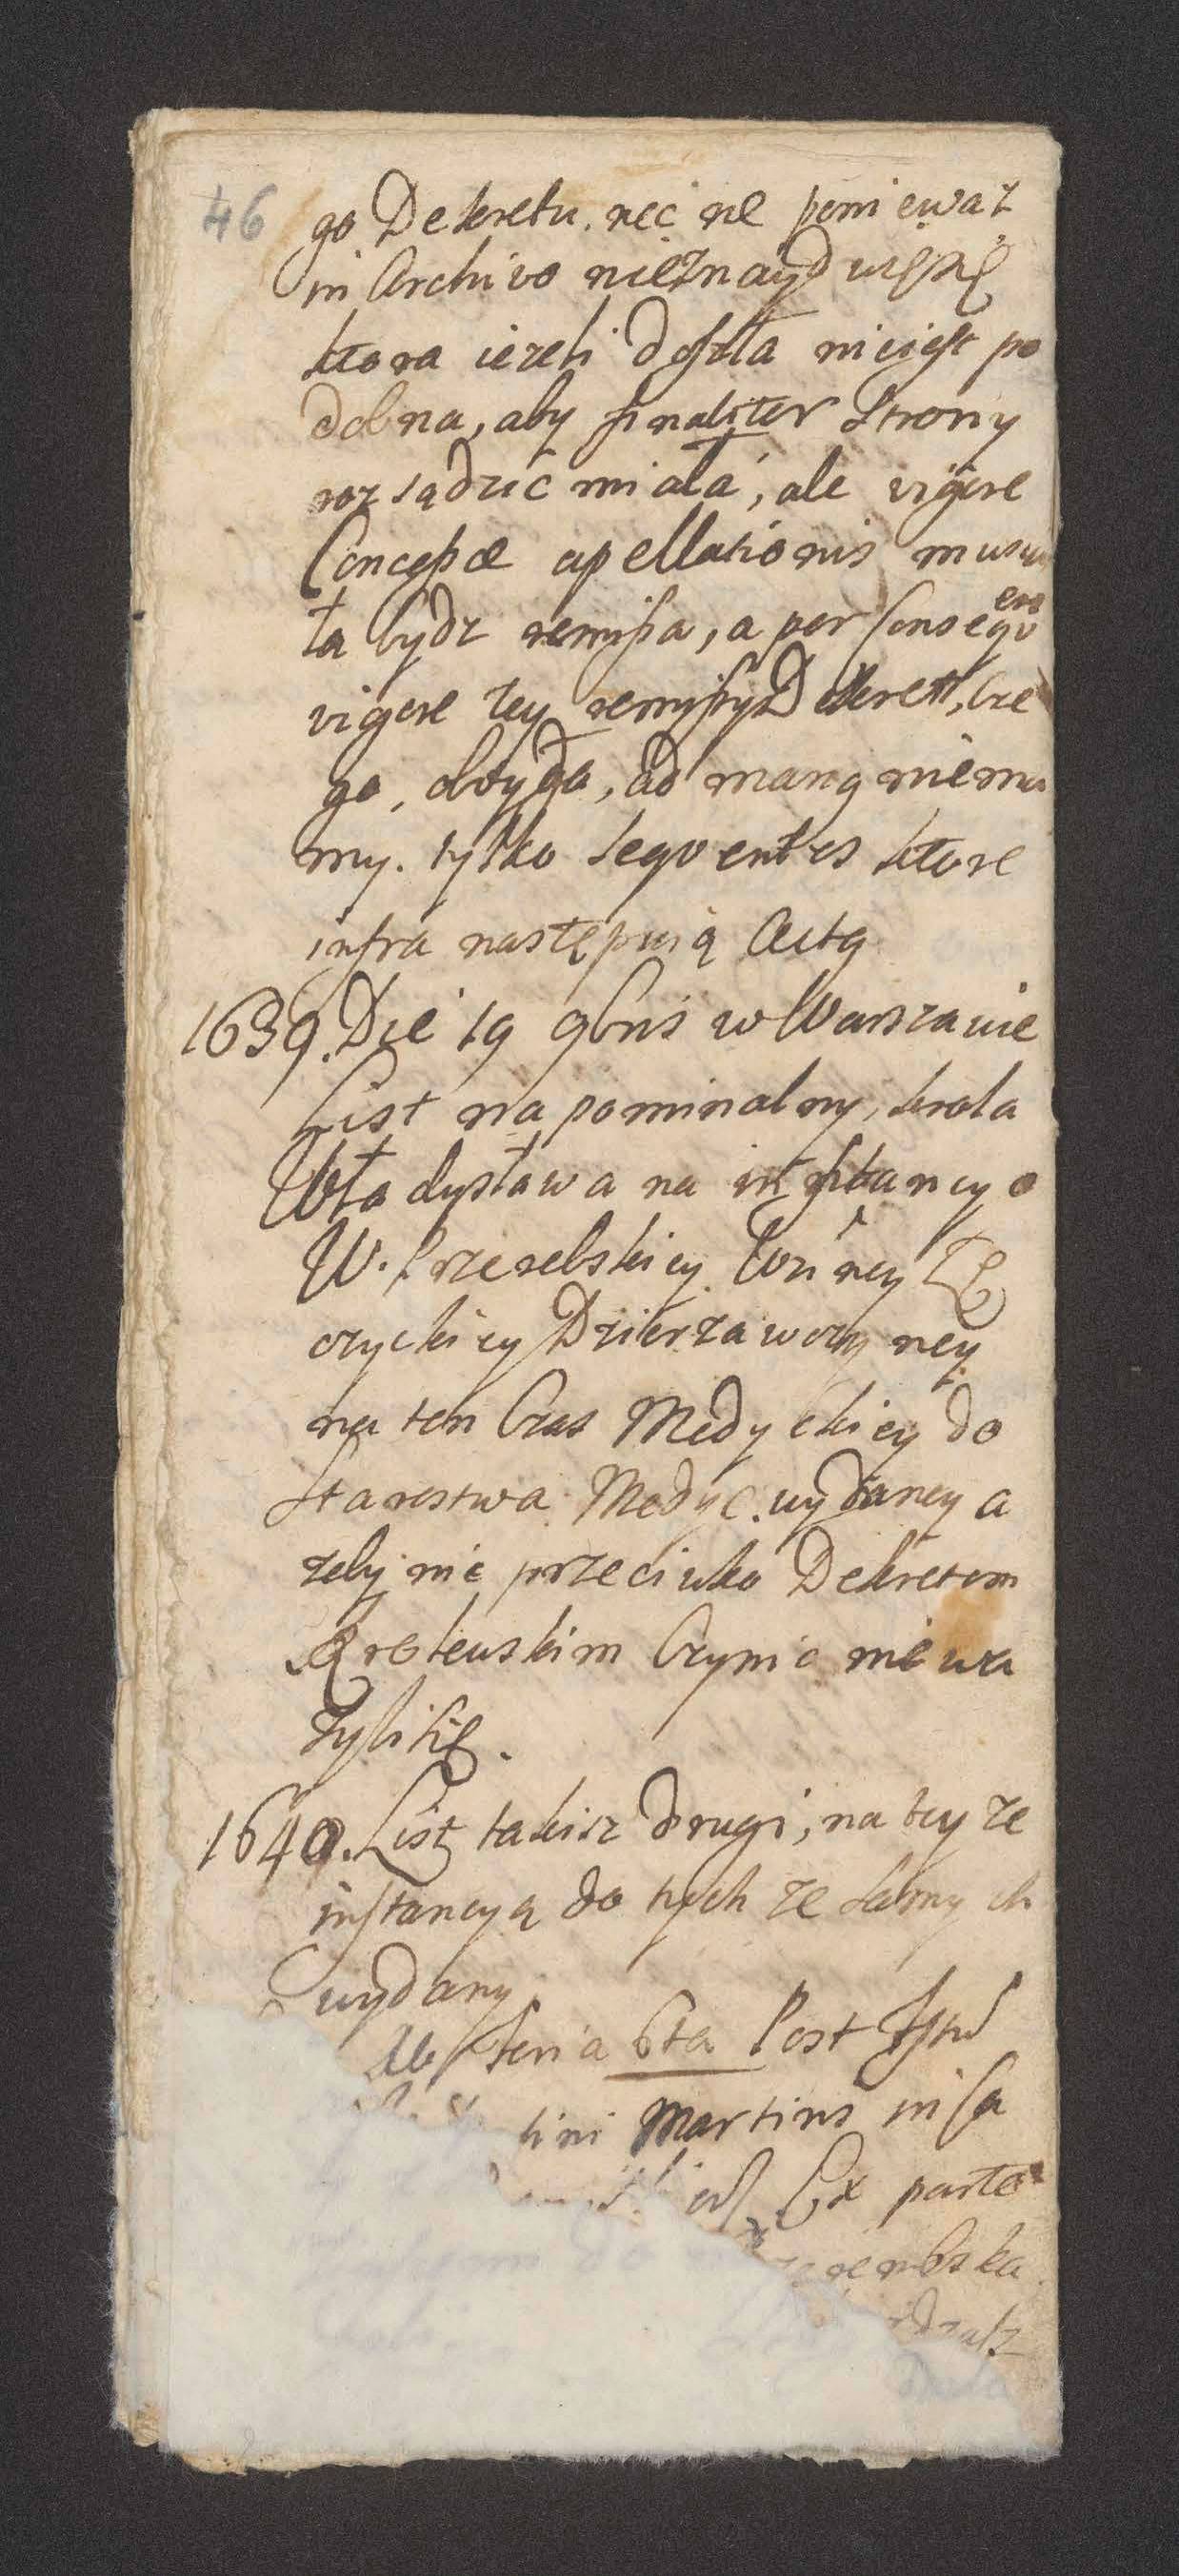 46
go Dekretu. nec ne poniewaz
in Archivo nieznayduięsię
ktora iezeli doszła nieiest po
dobna, aby finaliter Strony
rozsądzić miała, ale vigore
Concessæ apellationis musia
ła bydz remissa, a per Conseqven
vigore tey remissy Dekrett, cze
go, oboyga, ad mang niema
my. tylko seqventes ktore
infra następuią Acta
1639. Die 19 9bris w Warszawie
List napominalny, krola
Władysława na instancyo
W. Przerebskiey
czyckiey Dzierzawczyney
na ten Czas Medyckiey do
Starostwa Medyc. wydaney a
zeby nic przeciwko Dekretom
Krolewskim Czynic niewa
zylisię.
1640. List takisz drugi, na tey ze
instancyą do tych ze samych
wydany
feria 6ta Post
tini Martins in Ca
Ex parte